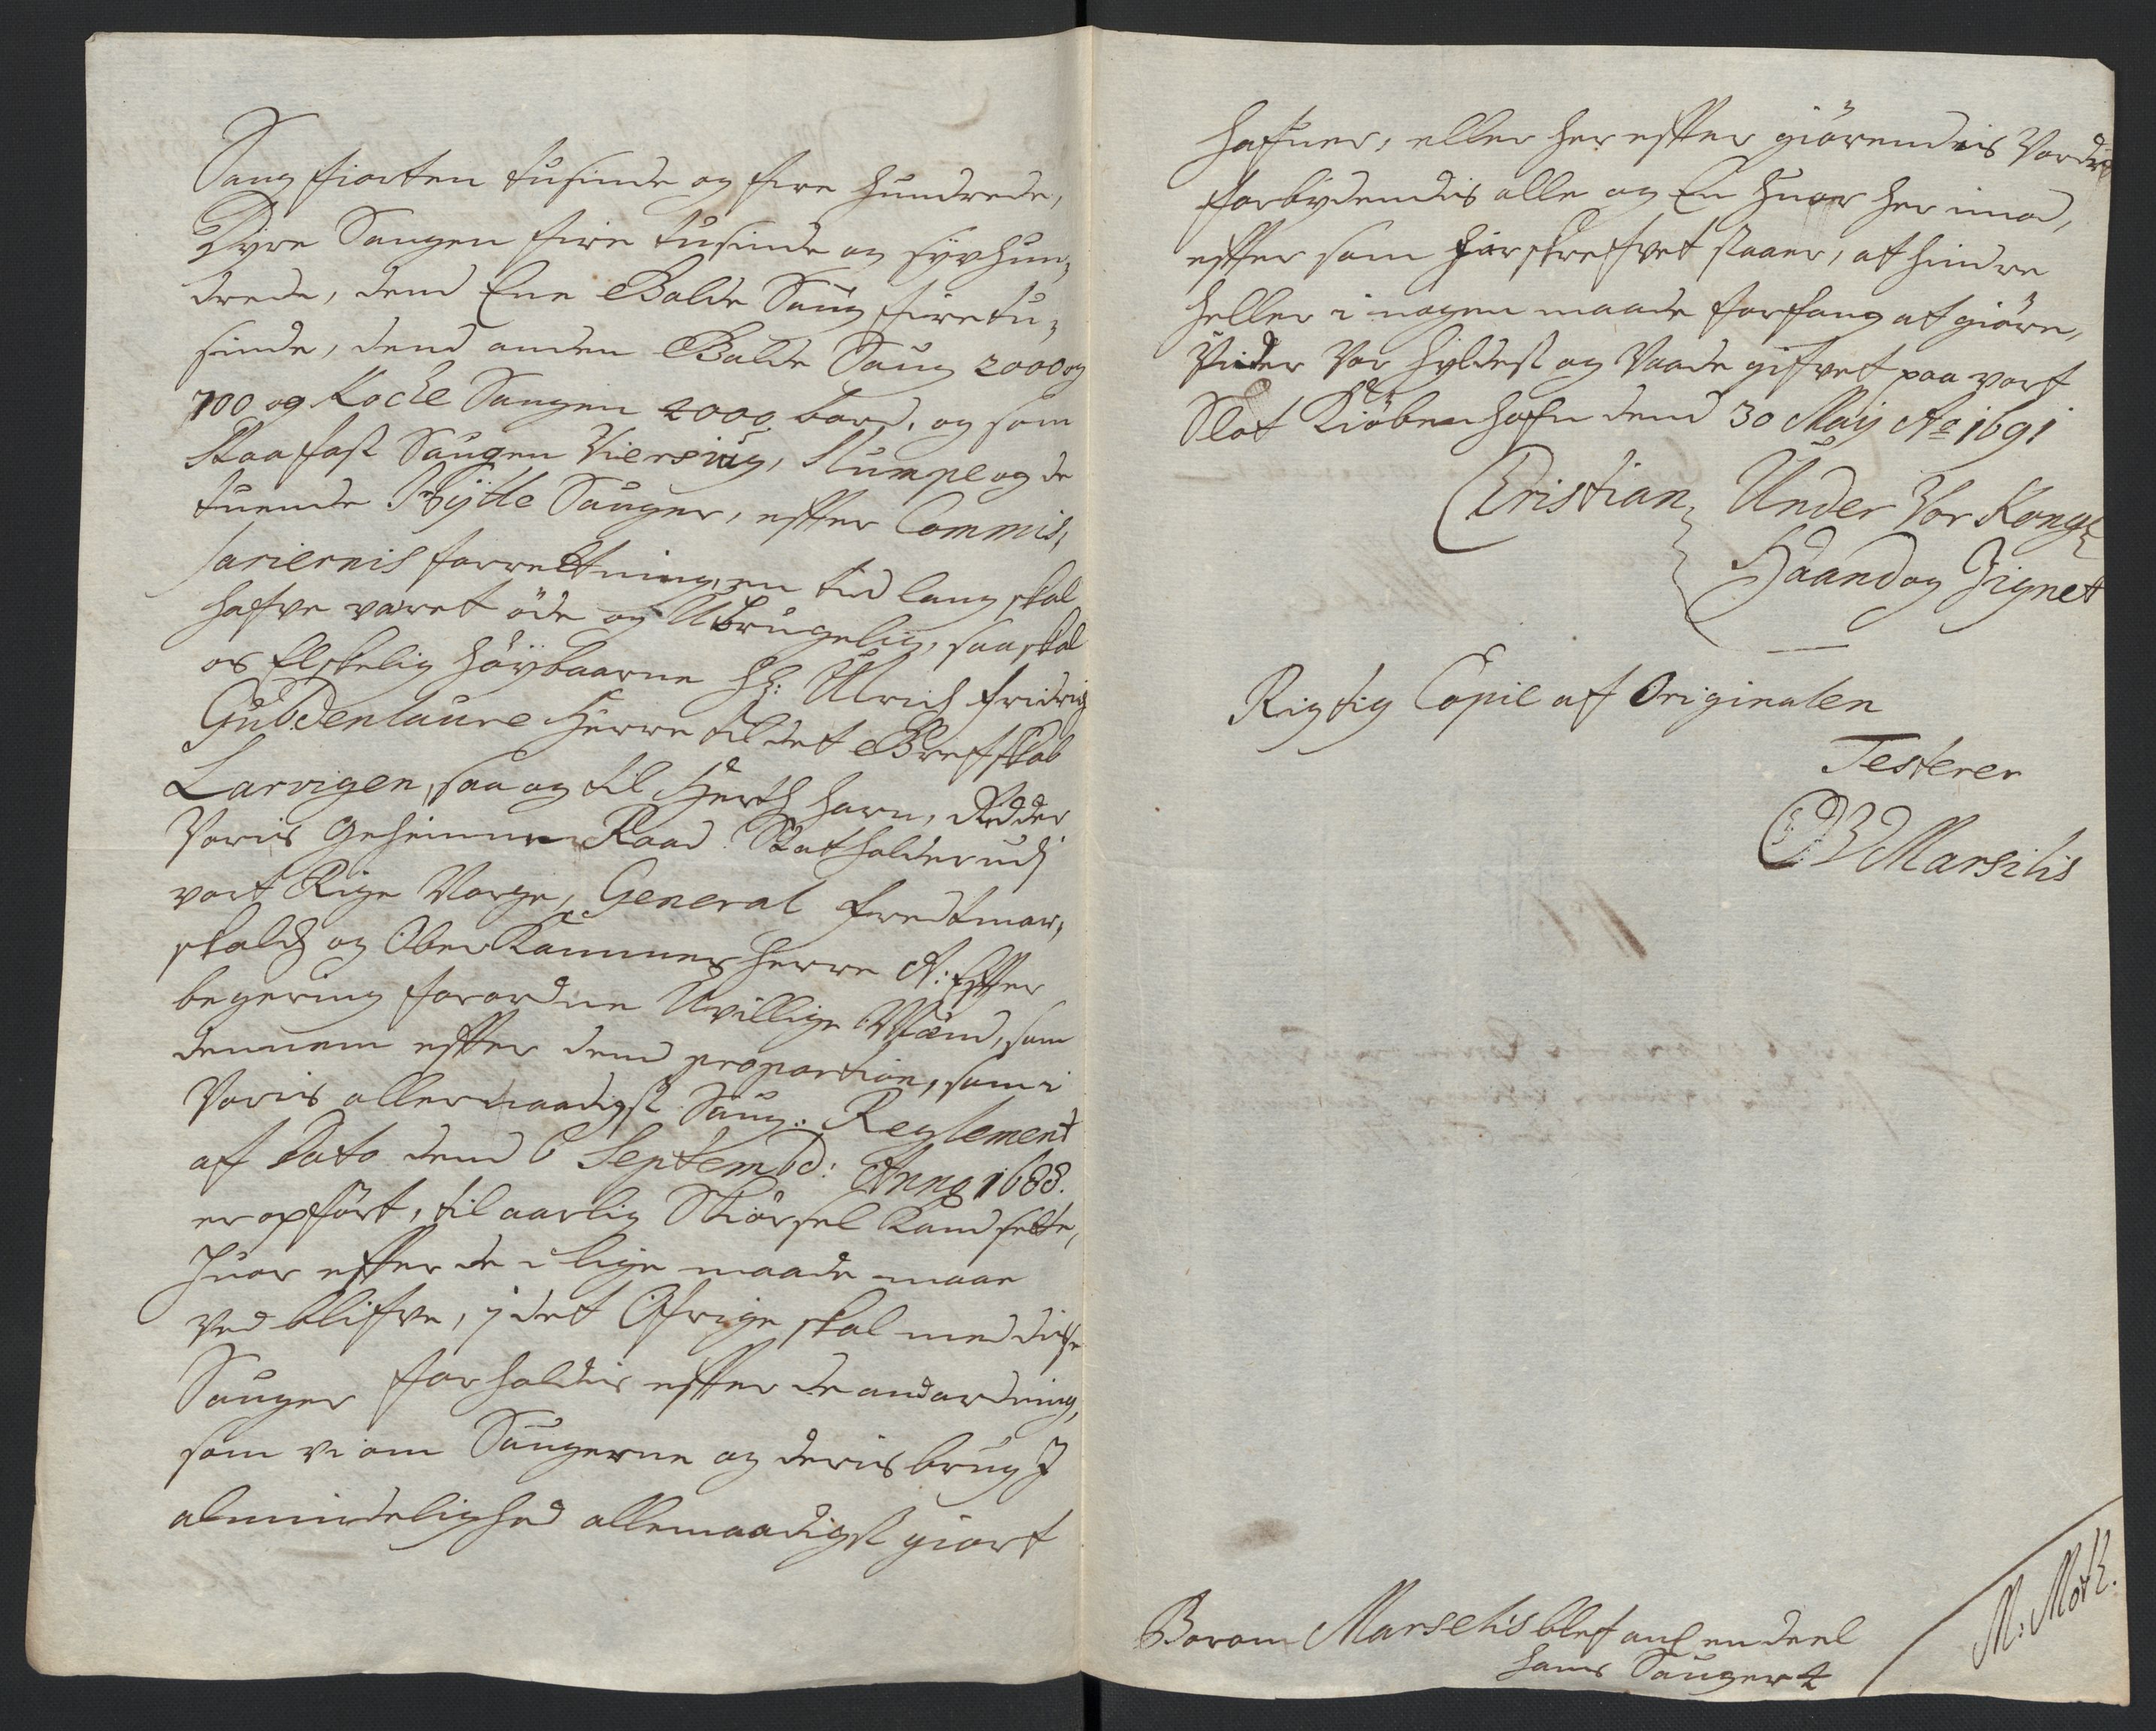 Saug fiorten tusinde og fire hundrede,
Dyre Saugen fire tusinde og syvhun,
drede, dend Ene Balde Saug fire tu,
sinde, dend anden Balde Saug 2000 og
700 og Kocke Saugen 2000 bord. og som
Staafast Saugen Kiersiug, Stumpe og de
tuende Hytte Sauger, effter Commis,
sariernis forretning, en tid lang skal
hafve været öde og Ubrugelig, saa skal
os Elskelig Höybaarne Hr: Ulrich Fridrig
Guldenlaure Herre til det Grefskab
Larvigen, saa og til Hertz horn, Ridder
Voris Geheimme Raad Statholder udj
vort Rige Norge, General Feedtmar,
skalch og Ober Kammer Herre A: Effter
begering forordne Uvillige Mænd, som
dennem effter dend proportion, som i
Voris allernaadigst Saug: Reglement
af Dato dend 6 Septembd: Anno 1688.
er opfört, til aarlig Skiörsel Kand sette,
huor effter de i lige maade maae
ved blifve, j det Öfrige skal med disse
Sauger forholdis effter de anordning,
som vi om Saugerne og deris brug J
almindelighed allernaadigst giort
hafuer, eller her effter giörendis Vorder
forbydendis alle og En huer her imod,
effter som forskrefvet staaer, at hindre
heller i nogen maade forfang at giöre,
Under Vor hyldest og Naade gifvet paa vort
Slot Kiöbenhafn dend 30 Maij Ao 1691
Christian Under Vor Kongl
Haand og Zignet
Rigtig Copie af Originalen
Testerer
CW Marsilis
Baron Marselis blef anl en deel
hans Sauger
M: Mörk.